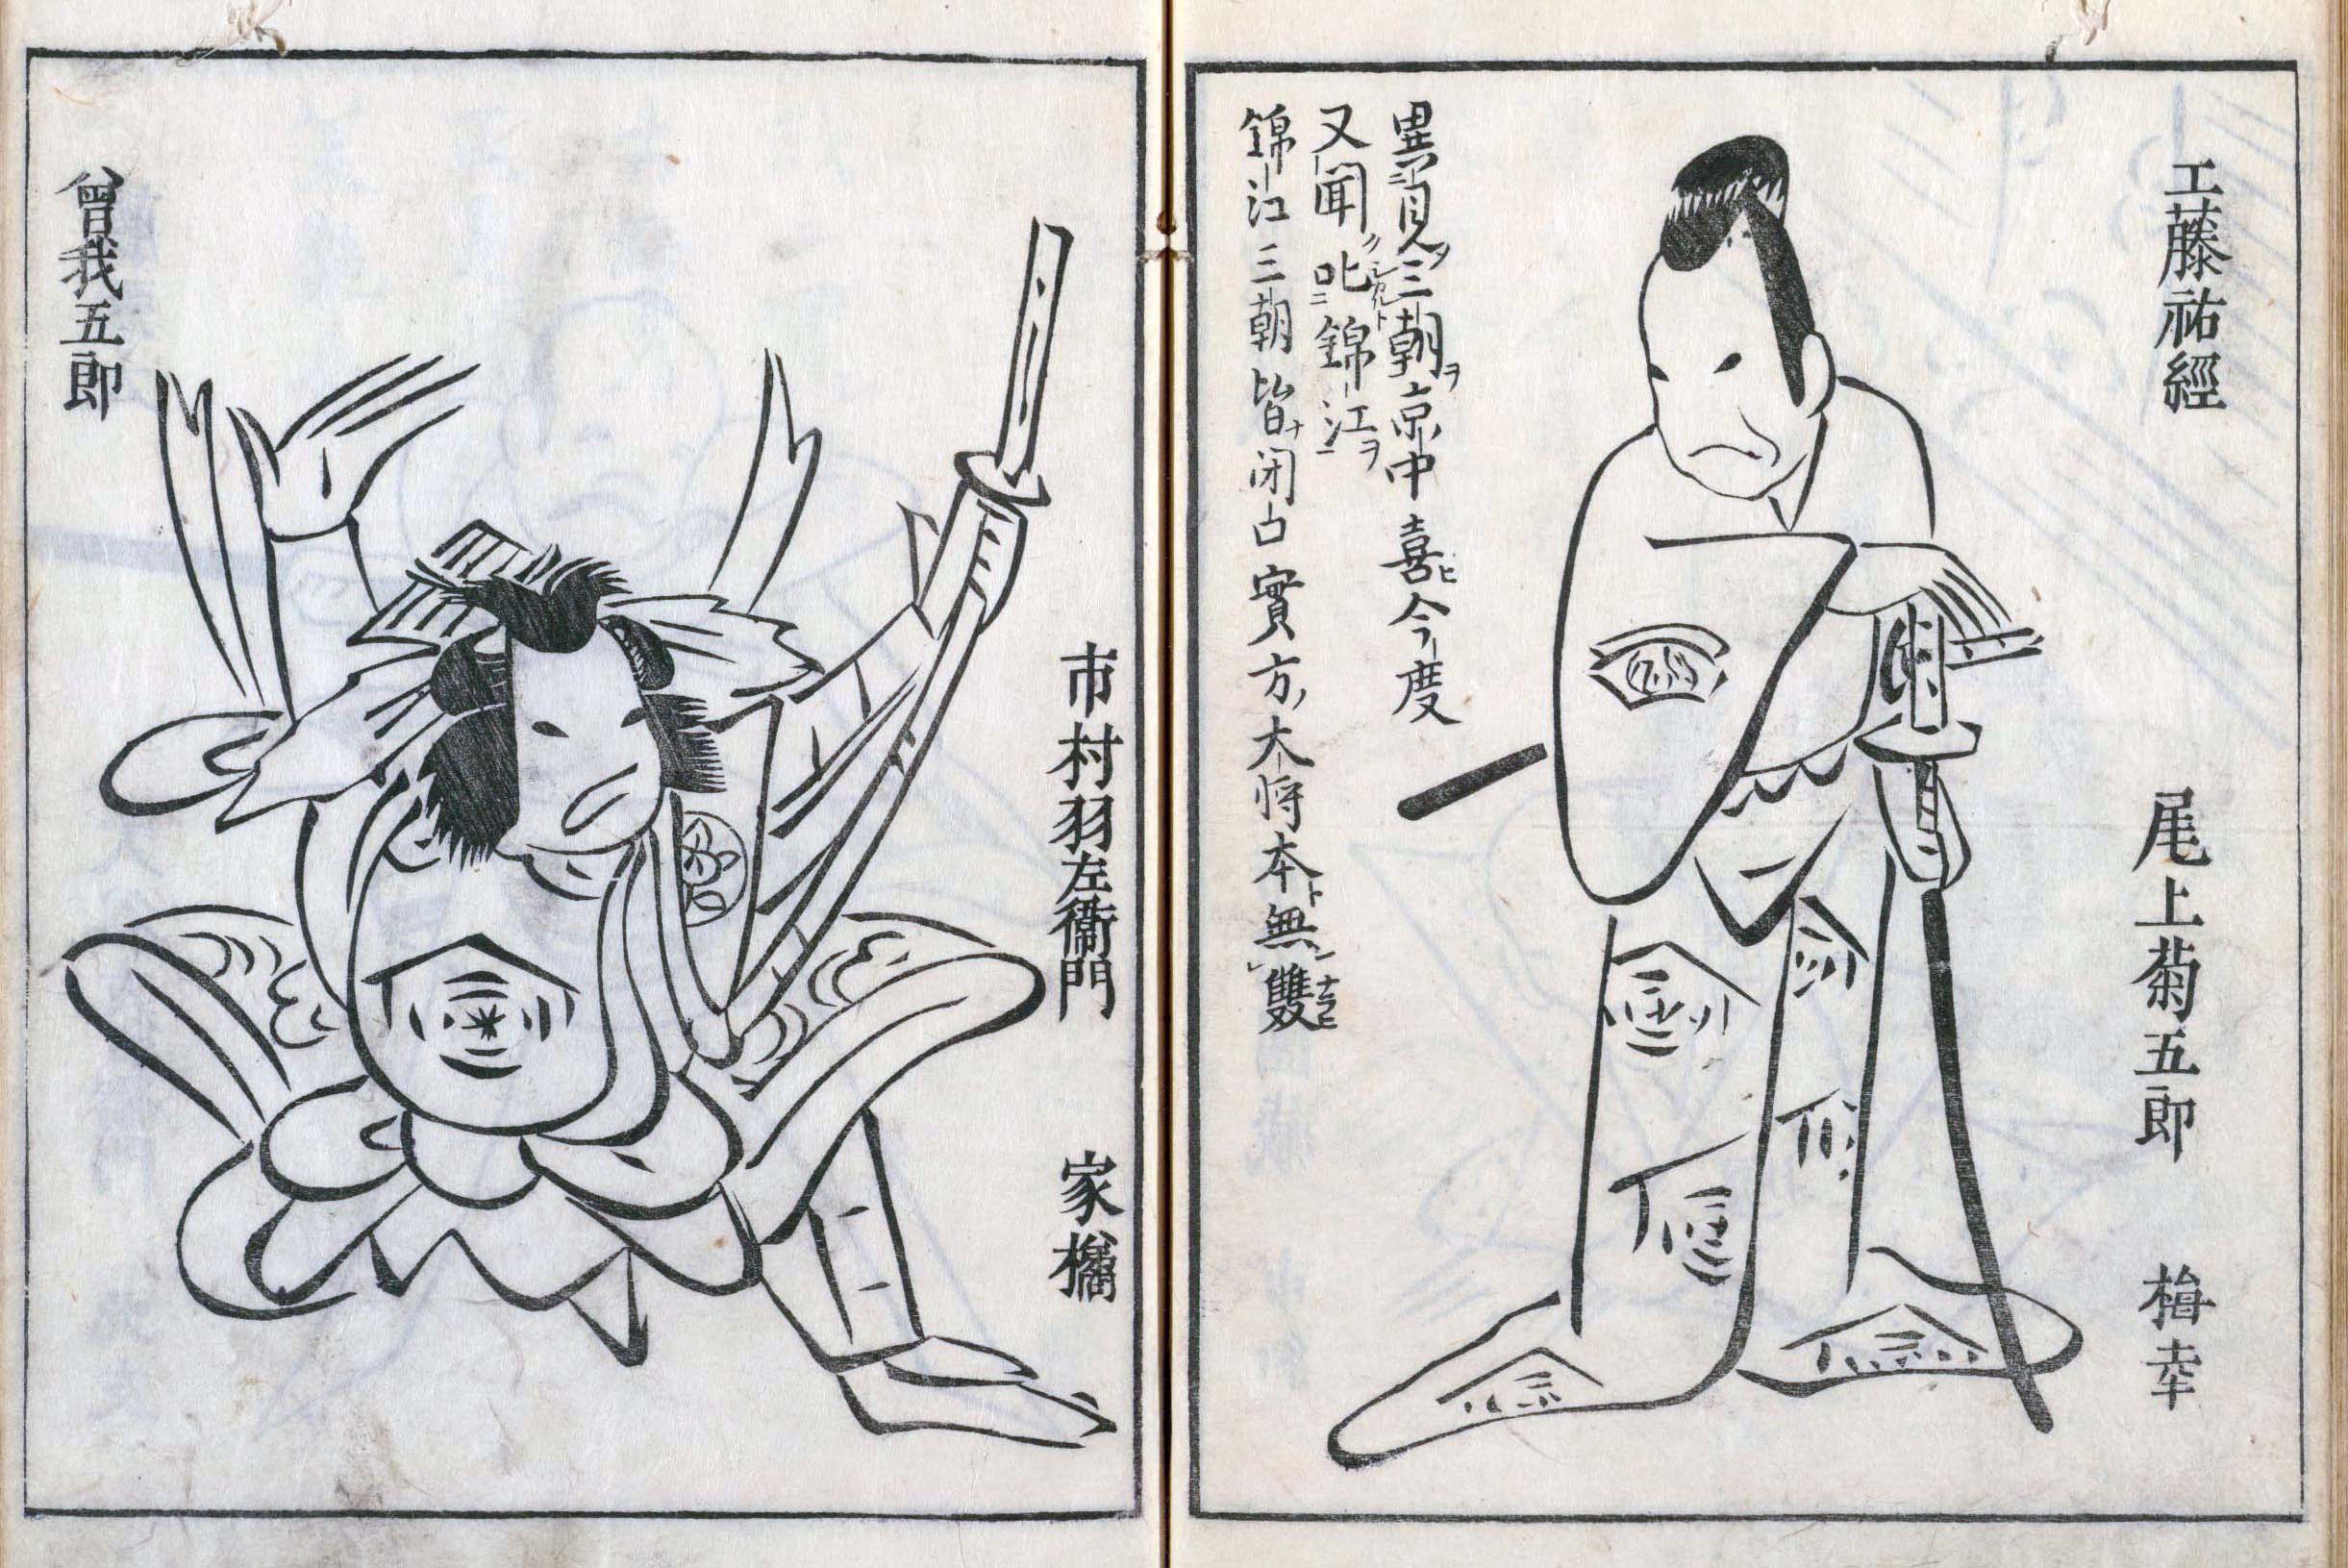 工藤祐經
尾上菊五郎
梅幸
異見三朝京中喜今度
又聞叱錦江
錦江三朝皆閉口實方大将本無雙
市村羽左衞門
家橘
曾我五郎